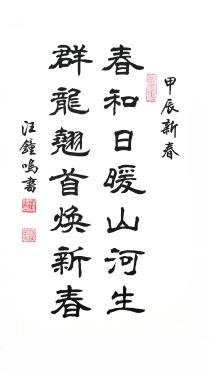 甲辰新春
春和日暖山河生
群龍翹首煥新春
汪鐘鳴書